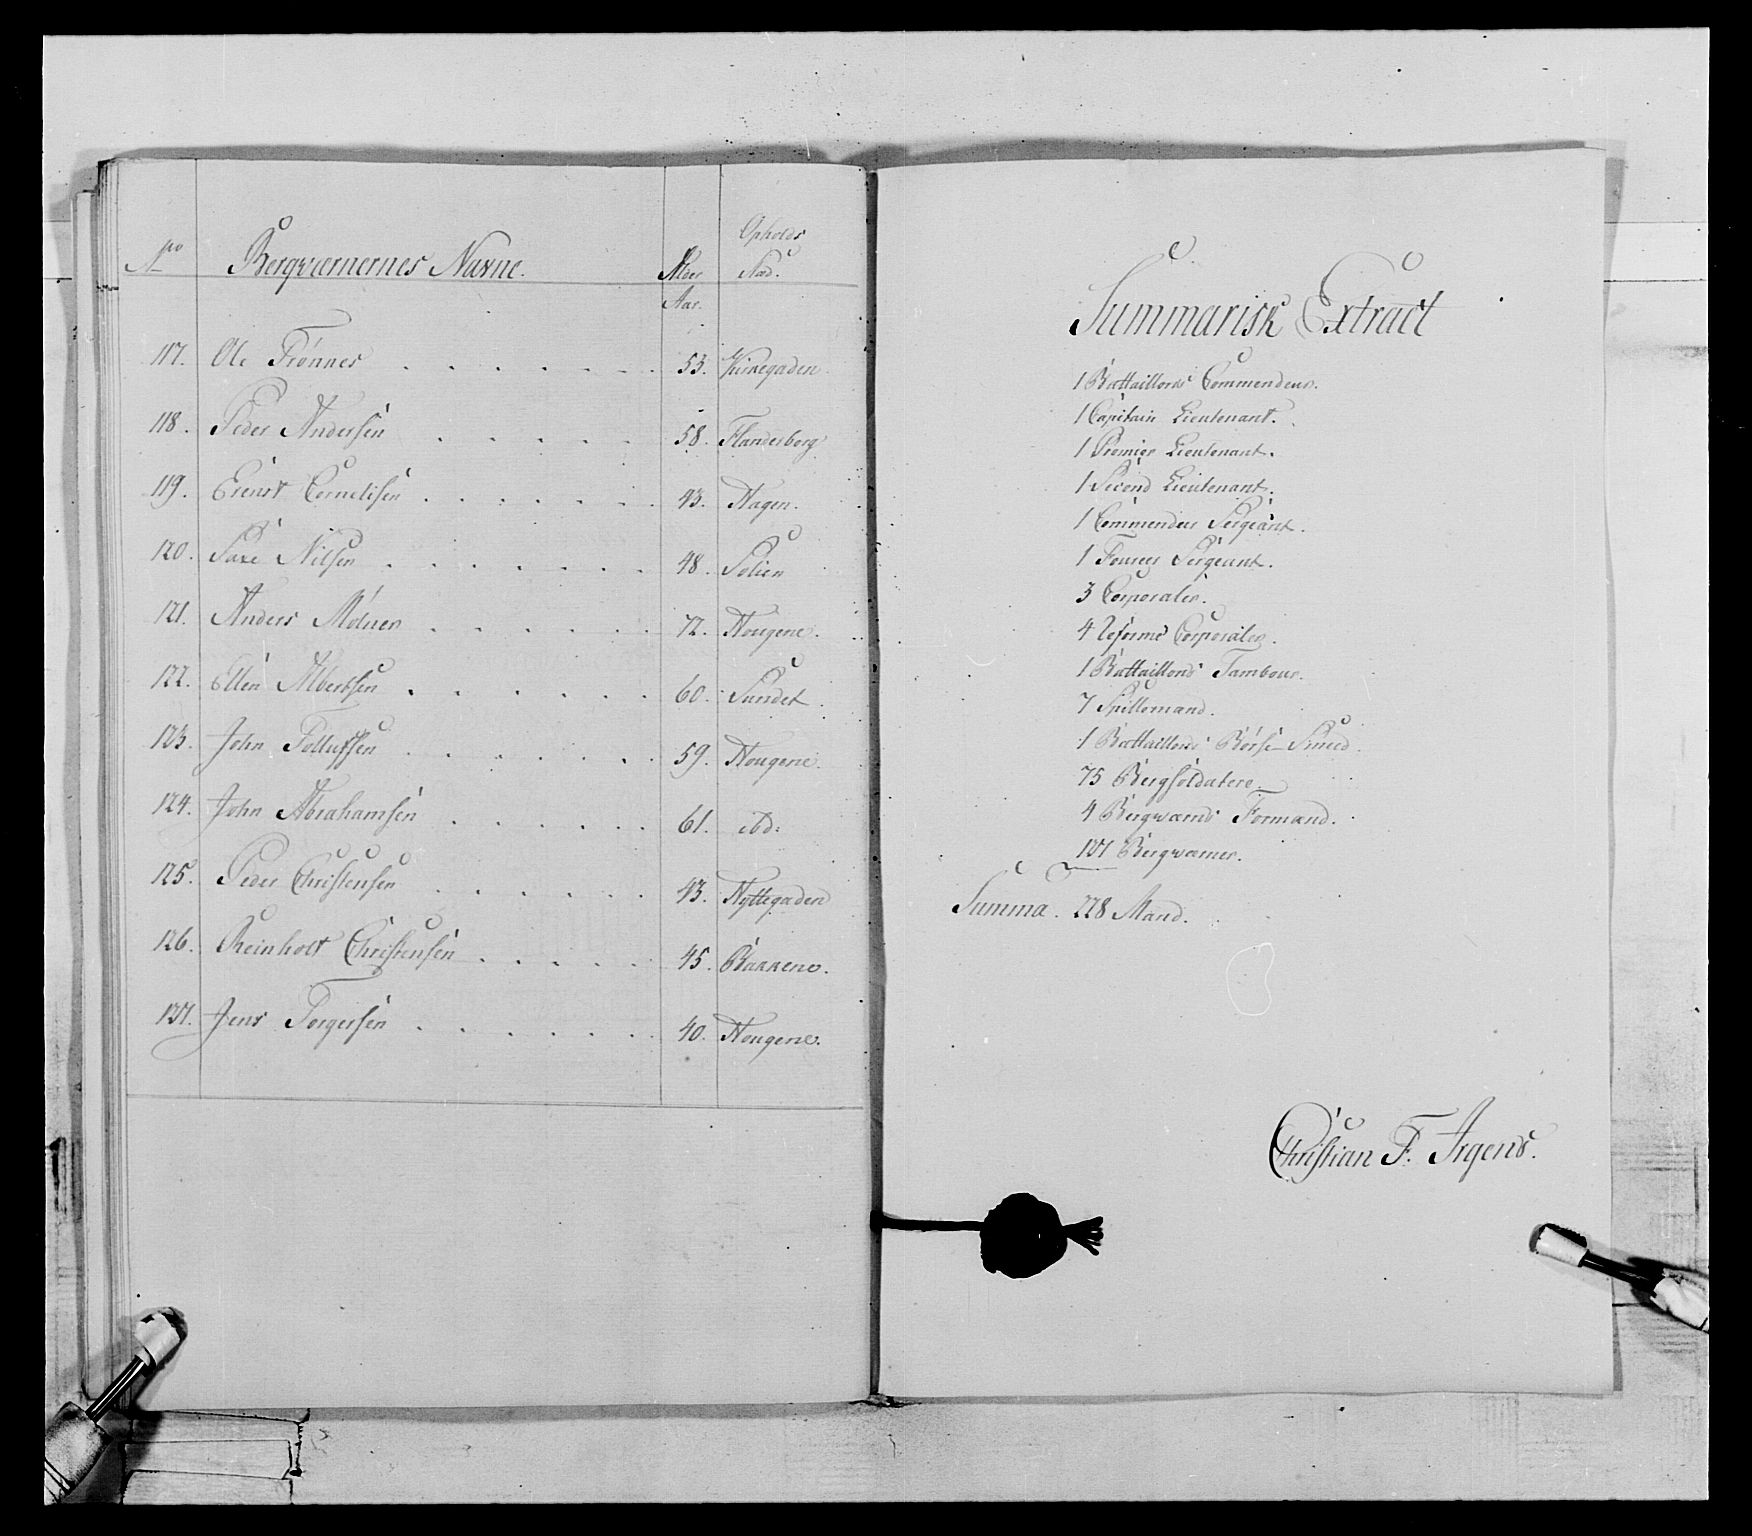 No Bergværnernes Navne. Alder Opholds
Aar. Stad.
117. Ole Trönnes 53. Kirkegaden.
118. Peder Andersen 58. Flandesborg
119. Erenst Cornelisen 43. Hagen.
120. Saxe Nilsen 48. Solien
121. Anders Mölner 72. Hougene.
122. Ellen Albertsen 60. Sundet.
123. John Tollufsen 59. Hougene.
124. John Abrahamsen 61. ibd:
125. Peder Christensen 43. Hyttegaden
126. Reinholt Christensen 45. Bakkene.
127. Jens Torgersen 40. Hougene.
Summarisk Extract
1 Battaillons Commendeur.
1 Capitain Lieutenant.
1 Premier Lieutenant.
1 Second Lieutenant.
1 Commendeur Sergeant.
1 Fourer Sergeant.
3 Corporaler.
4 Reforme Corporaler.
1 Battaillons Tambour.
7 Spillemænd.
1 Battaillons Börse-Smed.
75 Bergsoldatere
4 Bergværns Formænd.
127 Bergværner.
Summa. 228 Mand.
Christian F. Irgens.